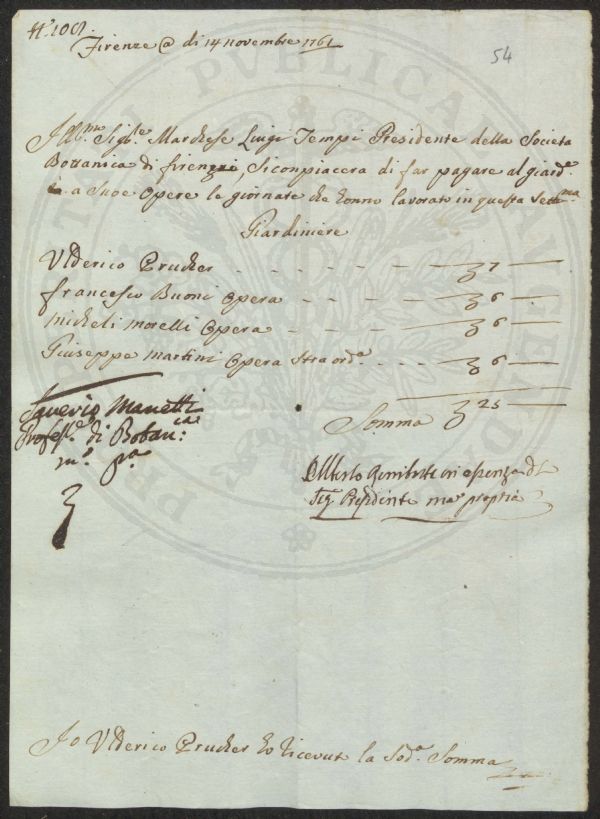 N.° 100.
Firenze @ di 14 novembre 1761
54
Ill.mo Sig.re Marchese Luigi Tempi Presidente della Società
Bottanica di firenze, Si conpiacera di far pagare al giard.e
e a Suoe Opere le giornate che hanno lavorato in questa Sett.ma
Giardiniere
Vlderico Prucker - - - - - 7 —
francesco Buoni Opera - - - - 6 —
Micheli Morelli Opera - - - 6 —
Giuseppe Martini Opera Straord.a - - - 6 —
Somma 25
Saverio Manetti
Profess.e di Botan.ca
m.o p.a
Alberto in assenza del
Sig. Presidente mano propria
Io Vlderico Prucker ho ricevuto la Sod.a Somma